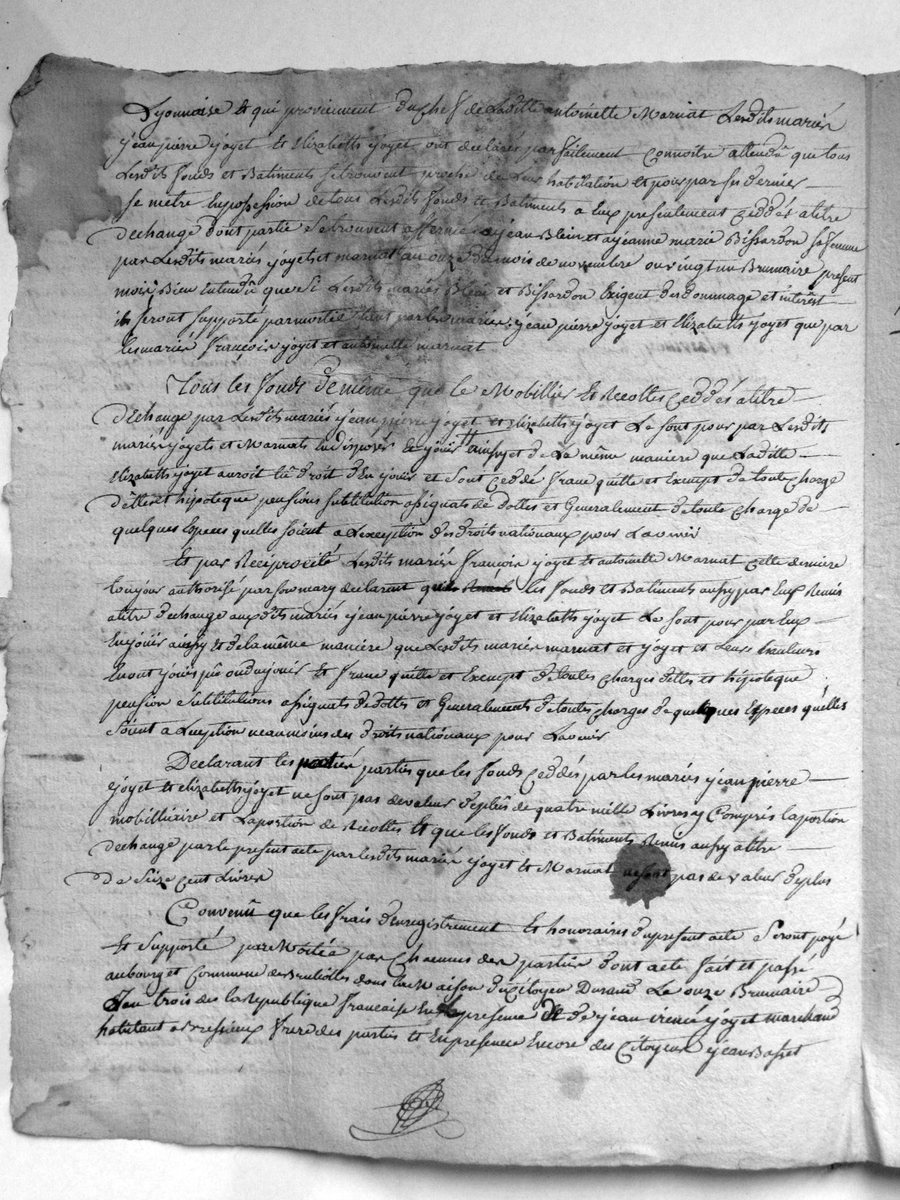 Lyonnaise et qui proviennent du chef de Laditte antoinette Marnat Lesdits mariés
jean pierre joyet et Elizabeth joyet ont declarés parfaitement connoitre attendû que tous
Lesdits fonds et Batiments se trouvent proche de Leur habitation et pour par ses dernier
se metre en possession de tous Lesdits fonds et Batiments a Eux presentement ceddés a titre
dechange dont partie se trouvent affermé a jean Blein et a jeanne marie Bissardon sa femme
par Lesdits mariés joyets et marnat au onze du mois de novembre ou vingt un Brumaire present
mois, Bien entendû que si Lesdits mariés Blein et Bissardon Exigent des dommage et interêt
il seront supporté par moitié tant par les mariés jean pierre joyet et Elizabeth joyet que par
les mariés françois joyet et antoinette marnat
Tous les fonds de même que le Mobillier et Recoltes ceddés a titre
dechange par Lesdits mariés jean pierre joyet et elizabeth joyet Le sont pour par Lesdits
mariés joyets et Marnat en disposer et jouir ainsy et de La même maniere que Laditte
elizabeth joyet auroit eû droit d'En jouir et sont ceddé franc quitte et Exempt de toute charge
dettes et hipoteque pensions substitution assignats de dottes et Generalement de toute charge de
quelques Especes quelles soient a Lexception des droits nationaux pour Lavenir
Et par Reciprocité Lesdits mariés françois joyet et antoinette Marnat cette derniere
toujour authorisé par son mary declarent que les fonds et Batiments aussy par Eux Remis
a titre dechange auxdits mariés jean pierre joyet et Elizabeth joyet Le sont pour par Eux
En jouir aussy et de la même maniere que Lesdits mariés marnat et joyet et Leurs hauteurs
En ont jouis pû ou dû jouir et franc quitte et Exempt de toutes charges dettes et hipoteque
pension substitutions assignats de dottes et Generalements de toute charges de quelques Especes quelles
soient a Lexeption neanmoins des droits nationaux pour Lavenir
Declarant les parties que les fonds ceddés par les mariés jean pierre
joyet et elizabeth joyet ne sont pas de valeur de plûs de quatre mille Livres y Compris la portion
mobilliaire et La portion de Recoltes et que les fonds et Batiments Remis aussy a titre
dechange par le present acte par lesdits mariés joyet et Marnat ne sont pas de valeur de plus
de seize cent Livres
Convenû que les frais denregistrement et honoraires du present acte seront payé
et supporté par Moitié par Chacunes des parties dont acte fait et passé
au bourg et Commune de dans La Maison du Citoyen Durand Le onze Brumaire
l'an trois de la Republique francaise En presence de jean joyet marchand
habitant a Bressieux frere des parties et En presence Encore des Citoyens jean Basset